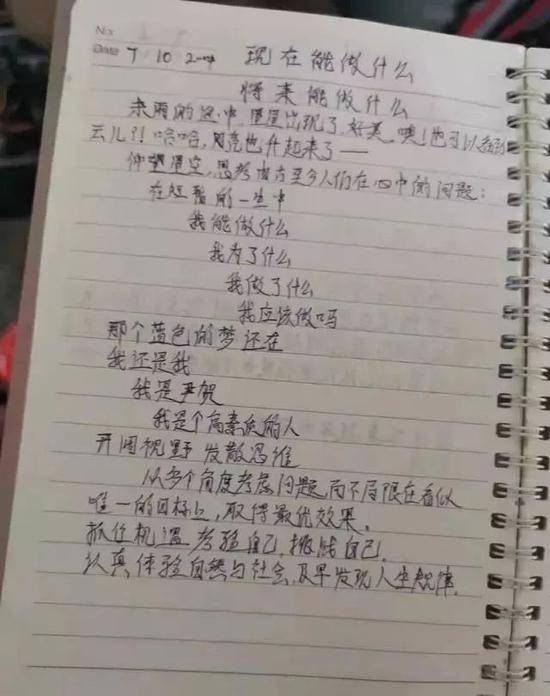 No:
Date 7 10 2004
现在能做什么
将来能做什么
来雨的途中,星星出现了,好美,噢!也可以看到
云儿?!哈哈,月亮也升起来了——
仰望星空,思考由古至今人们在心中的问题:
在短暂的一生中
我能做什么
我为了什么
我做了什么
我应该做吗
那个蓝色的梦还在
我还是我
我是尹贺
我是个高素质的人
开阔视野 发散思维
从多个角度考虑问题,而不局限在看似
唯一的目标上,取得最优效果。
抓住机遇 考验自己,挑战自己。
认真体验自然与社会,及早发现人生规律。